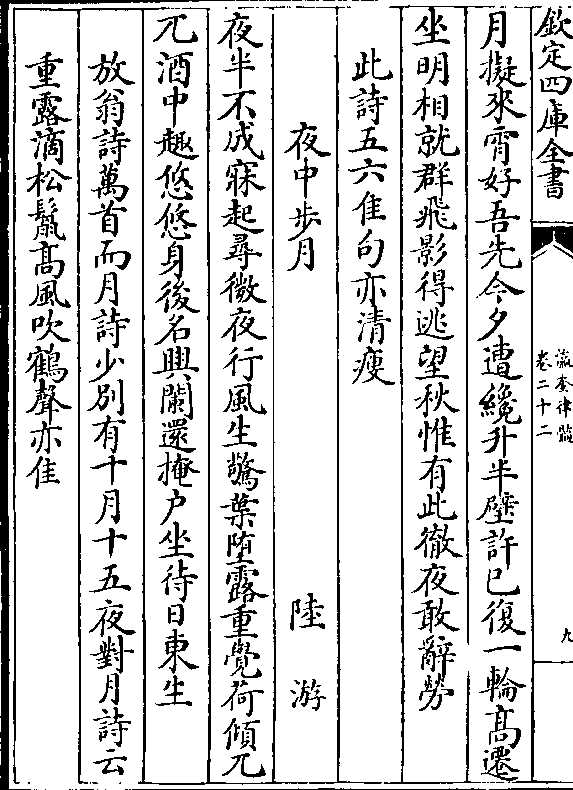 欽定四庫全書
瀛奎律髓
卷二十二
九
月擬來宵好吾先今夕遭纔升半壁許已復一輪高遷
坐明相就群飛影得逃望秋惟有此徹夜敢辭勞
此詩五六佳句亦清瘦
夜中步月 陸游
夜半不成寐起尋微夜行風生驚葉墮露重覺荷傾兀
兀酒中趣悠悠身後名興闌還掩户坐待日東生
放翁詩萬首而月詩少别有十月十五夜對月詩云
重露滴松鬛髙風吹鶴聲亦佳